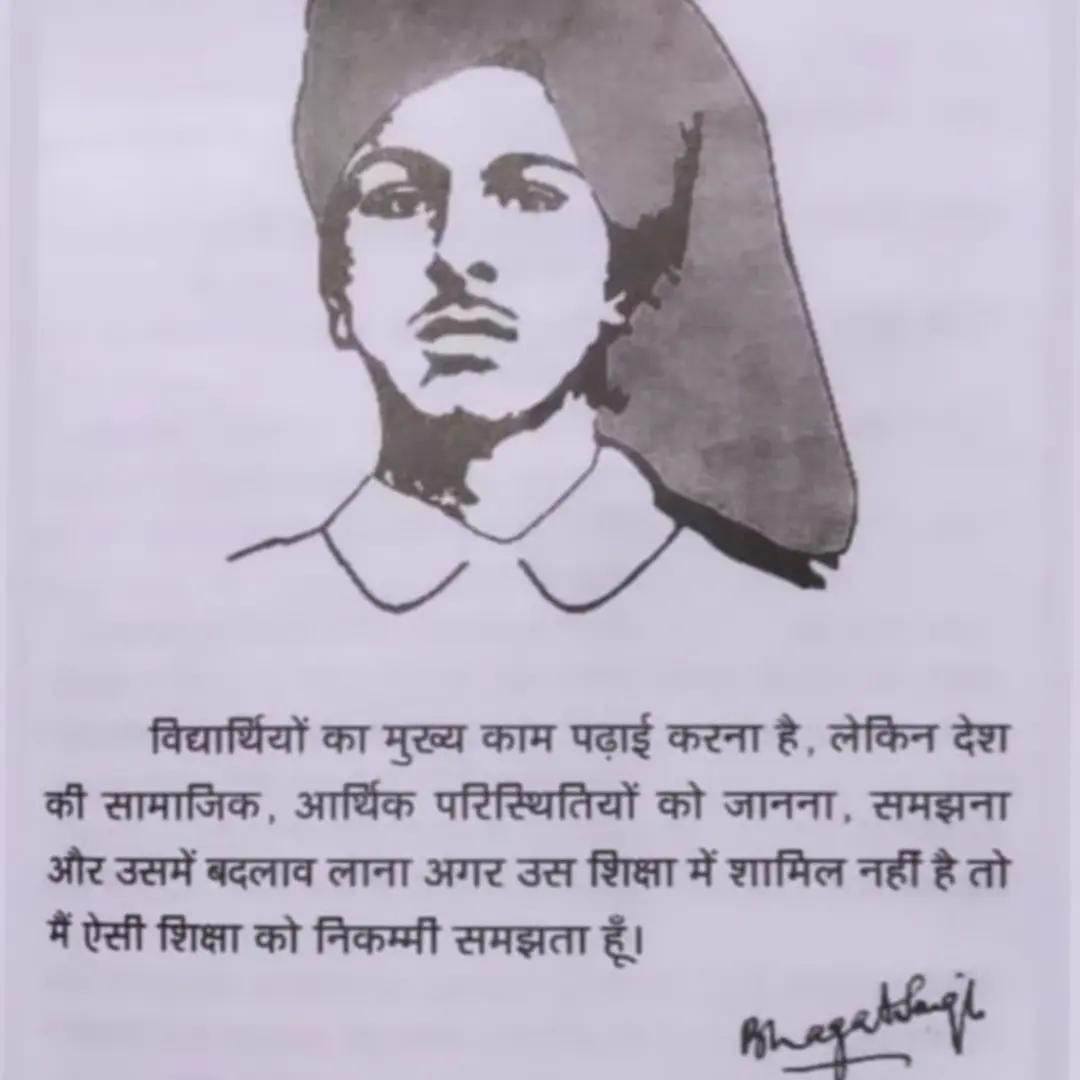 विद्यार्थियों का मुख्य काम पढ़ाई करना है, लेकिन देश
की सामाजिक, आर्थिक परिस्थितियों को जानना, समझना
और उसमें बदलाव लाना अगर उस शिक्षा में शामिल नहीं है तो
मैं ऐसी शिक्षा को निकम्मी समझता हूँ।
Bhagat Singh